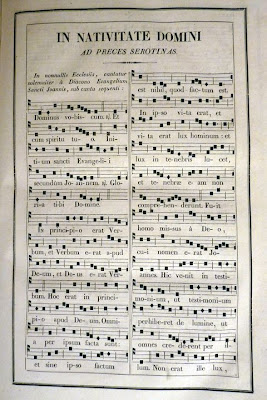 IN NATIVITATE DOMINI
AD PRECES SEROTINAS.
In nonnullis Ecclesiis, cantatur
solemniter à Diacono Evangelium
Sancti Joannis, sub cantu sequenti:
Dominus vo-bis- cum. ℟. Et
cum spiritu tu-o. Ini-
ti-um sancti Evange-li-i
secundum Jo-an-nem. ℟. Glo-
ri-a ti-bi Do-mi-ne.
In prin-ci-pi-o erat Ver-
bum, et Verbum e-rat apud
De-um, et De-us e-rat Ver-
bum. Hoc erat in princi-
pi-o apud De-um. Omni-
a per ipsum facta sunt:
et sine ip-so factum
est nihil, quod fac-tum est.
In ip-so vi-ta erat, et
vi-ta erat lux hominum: et
lux in te-ne-bris lu-cet,
et te-ne-bræ e-am non
compre-hen-de-runt. Fu-it
homo mis-sus à De-o,
cu-i nomen e-rat Jo-
annes. Hic ve-nit in testi-
mo-ni-um, ut testi-moni-um
per-hibe-ret de lumine, ut
omnes cre-de-rent per il-
lum. Non erat ille lux,